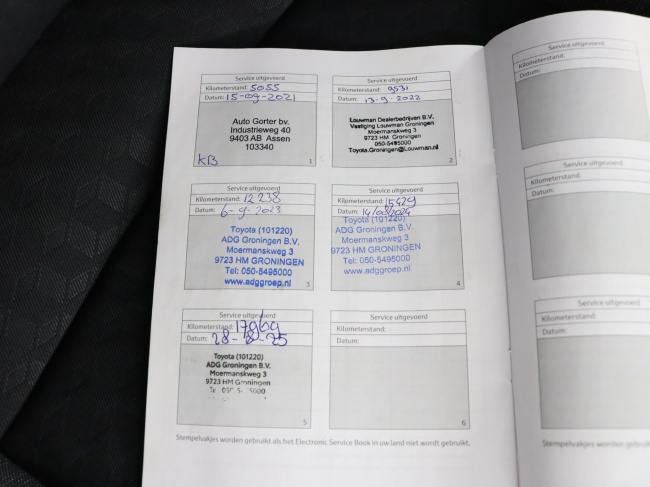 Service uitgevoerd
Kilometerstand: 5055
Datum: 15-09-2021
Auto Gorter bv.
Industrieweg 40
9403 AB Assen
103340
KB
1
Service uitgevoerd
Kilometerstand: 9531
Datum: 13-9 2022
Louwman Dealerbedrijven B.V.
Vestiging Louwman Groningen
Moermanskweg 3
9723 HM Groningen
050-5495000
Toyota.Groningen@Louwman.nl
2
Service uitgevoerd
Kilometerstand: 12238
Datum: 6-9-2023
Toyota (101220)
ADG Groningen B.V.
Moermanskweg 3
9723 HM GRONINGEN
Tel: 050-5495000
www.adggroep.nl
3
Service uitgevoerd
Kilometerstand: 15429
Datum: 14/08/2024
Toyota (101220)
ADG Groningen B.V.
Moermanskweg 3
9723 HM GRONINGEN
Tel: 050-5495000
www.adggroep.nl
4
Service uitgevoerd
Kilometerstand: 17969
Datum: 28-8-25
Toyota (101220)
ADG Groningen B.V.
Moermanskweg 3
9723 HM Groningen
5
Service uitgevoerd
Kilometerstand:
Datum:
6
Stempelvakjes worden gebruikt als het Electronic Service Book in uw land niet wordt gebruikt.
Service
Kilometerstand:
Datum:
Service uitgevoerd
Kilometerstand:
Datum:
Service uitgevoerd
Kilometerstand:
Datum:
Stempelvakjes worden gebruikt